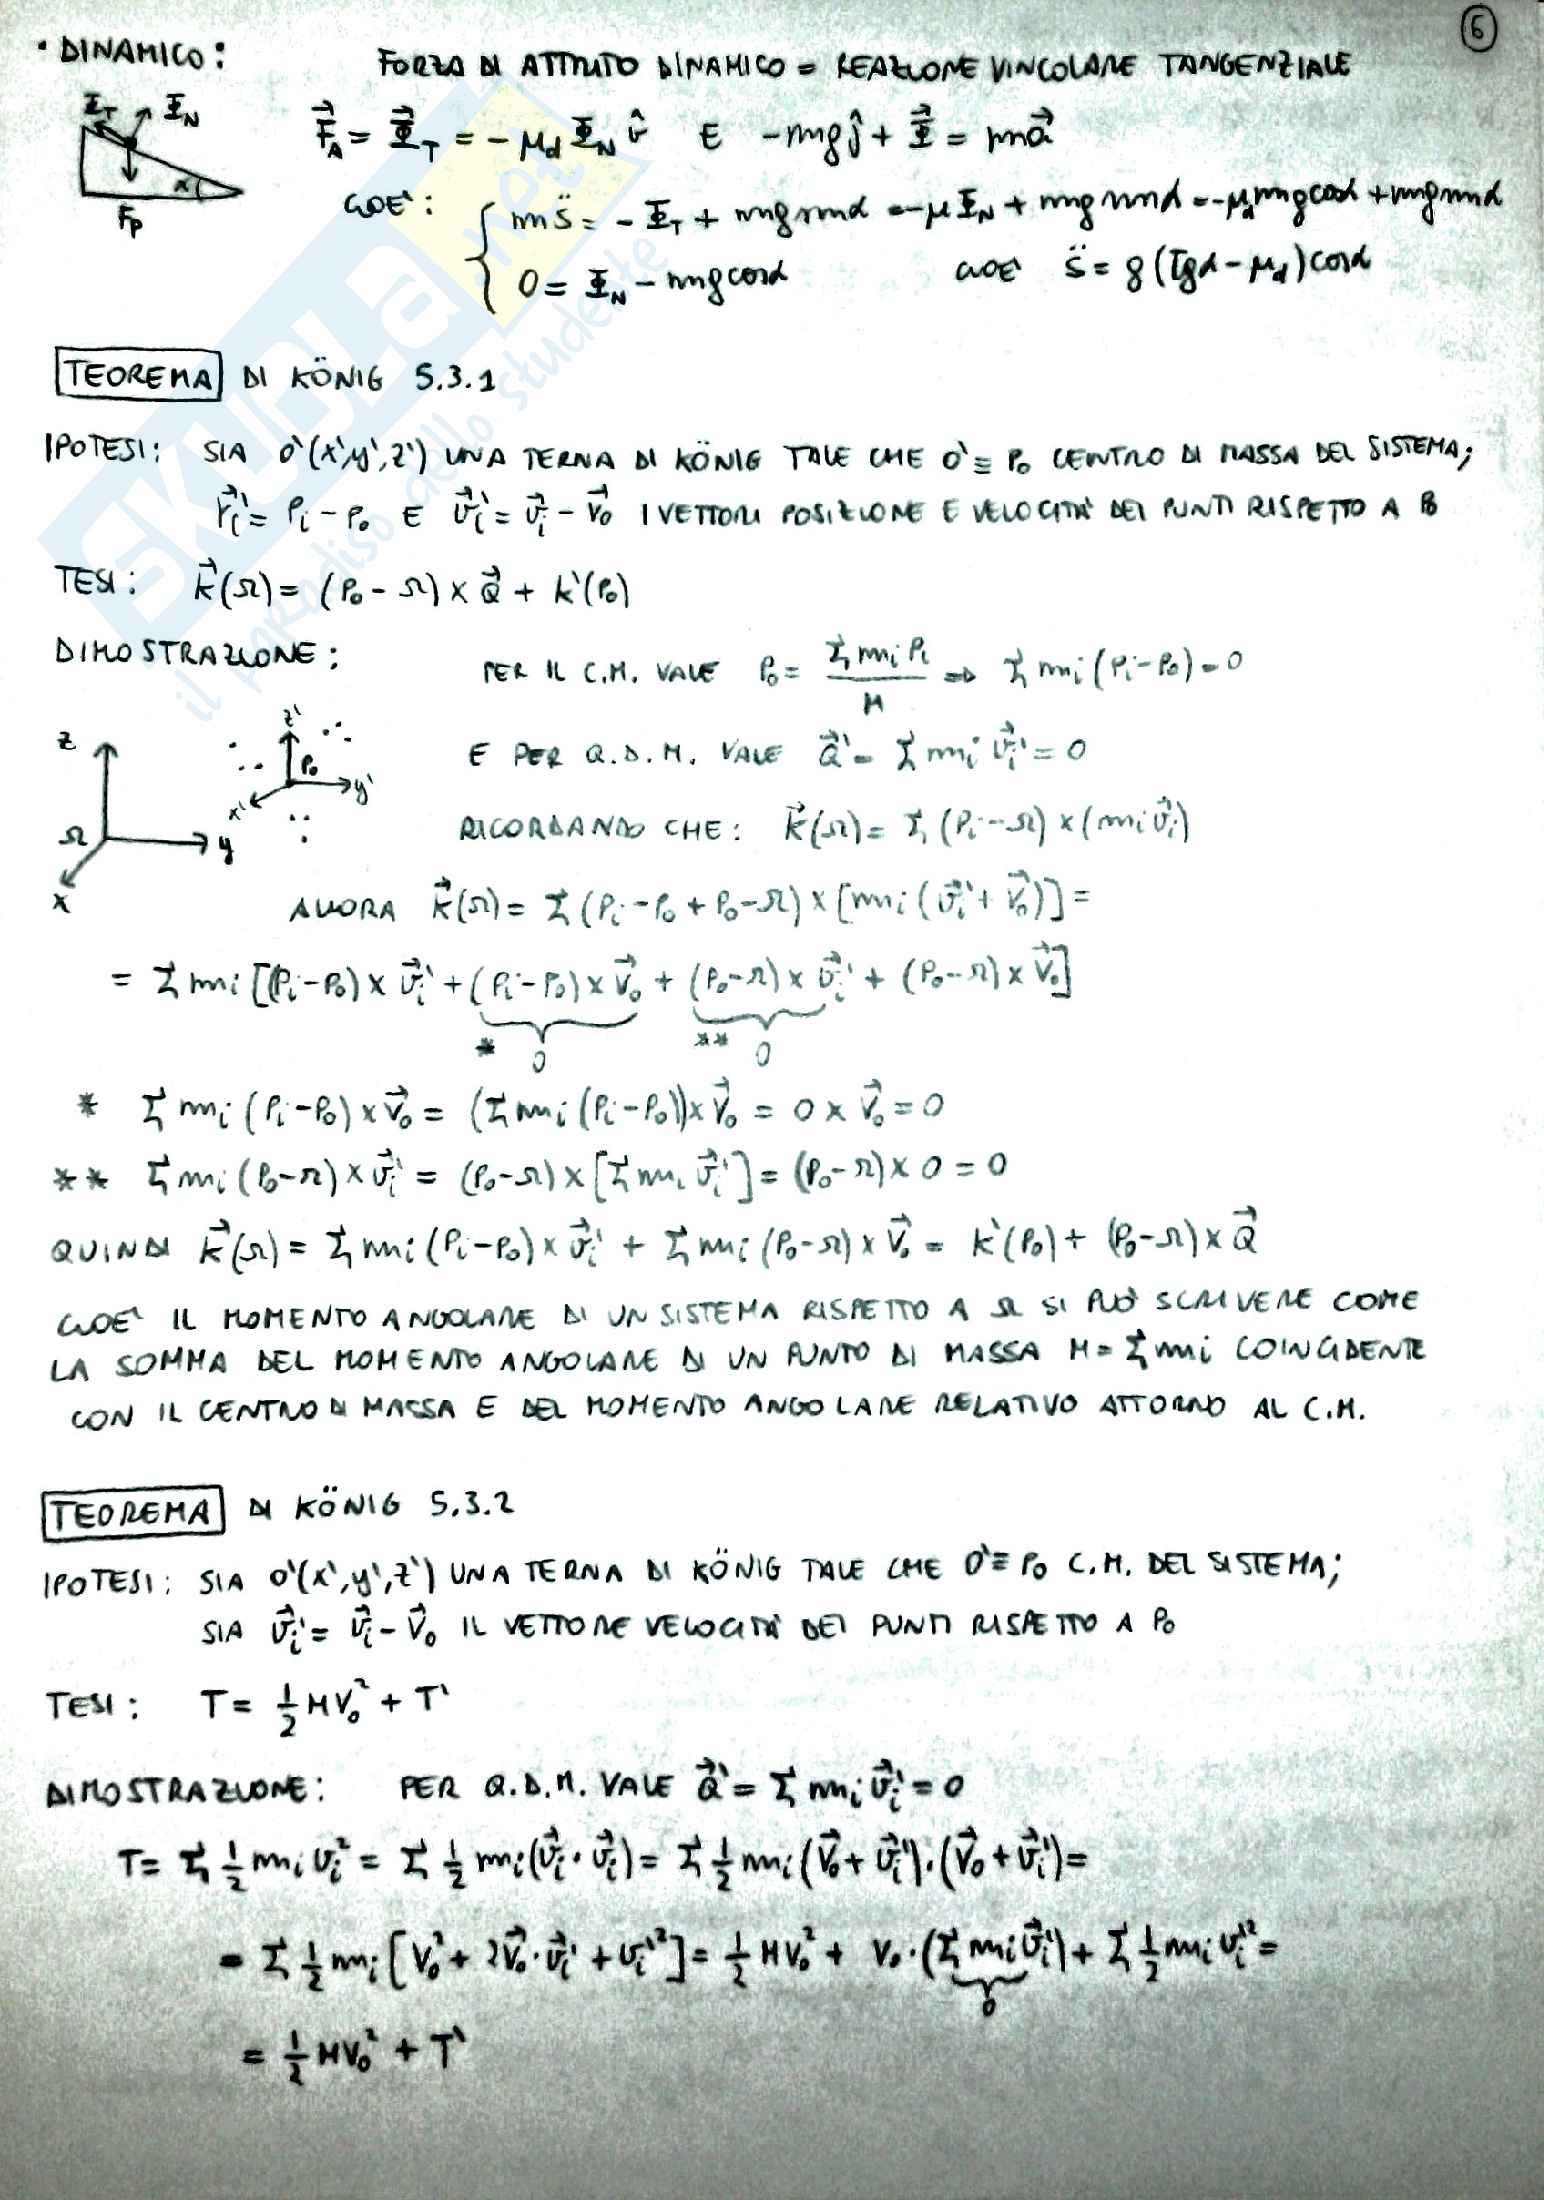 6
• DINAMICO: FORZA DI ATTRITO DINAMICO = REAZIONE VINCOLARE TANGENZIALE
Φ_T Φ_N α F_P
F⃗_A = Φ⃗_T = -μ_d Φ_N v̂ E -mgĵ + Φ⃗ = ma⃗
CIOE': { ms̈ = -Φ_T + mg sinα = -μΦ_N + mg sinα = -μ_d mg cosα + mg sinα
0 = Φ_N - mg cosα CIOE' s̈ = g(Tgα - μ_d)cosα
SKUOLA.net
il paradiso dello studente
TEOREMA DI KÖNIG 5.3.1
IPOTESI: SIA O'(x',y',z') UNA TERNA DI KÖNIG TALE CHE O' ≡ P₀ CENTRO DI MASSA DEL SISTEMA;
r⃗ᵢ' = Pᵢ - P₀ E v⃗ᵢ' = v⃗ᵢ - V⃗₀ I VETTORI POSIZIONE E VELOCITA' DEI PUNTI RISPETTO A P₀
TESI: K⃗(Ω) = (P₀ - Ω) × Q⃗ + K'(P₀)
DIMOSTRAZIONE: PER IL C.M. VALE P₀ = Σ mᵢ Pᵢ / M ⇒ Σ mᵢ(Pᵢ - P₀) = 0
z Ω y x z' P₀ y' x'
E PER Q.D.M. VALE Q⃗' = Σ mᵢ v⃗ᵢ' = 0
RICORDANDO CHE: K⃗(Ω) = Σ (Pᵢ - Ω) × (mᵢ v⃗ᵢ)
ALLORA K⃗(Ω) = Σ (Pᵢ - P₀ + P₀ - Ω) × [mᵢ(v⃗ᵢ' + V⃗₀)] =
= Σ mᵢ [(Pᵢ - P₀) × v⃗ᵢ' + (Pᵢ - P₀) × V⃗₀ + (P₀ - Ω) × v⃗ᵢ' + (P₀ - Ω) × V⃗₀]
* 0 ** 0
* Σ mᵢ (Pᵢ - P₀) × V⃗₀ = (Σ mᵢ (Pᵢ - P₀)) × V⃗₀ = 0 × V⃗₀ = 0
** Σ mᵢ (P₀ - Ω) × v⃗ᵢ' = (P₀ - Ω) × [Σ mᵢ v⃗ᵢ'] = (P₀ - Ω) × 0 = 0
QUINDI K⃗(Ω) = Σ mᵢ (Pᵢ - P₀) × v⃗ᵢ' + Σ mᵢ (P₀ - Ω) × V⃗₀ = K'(P₀) + (P₀ - Ω) × Q⃗
CIOE' IL MOMENTO ANGOLARE DI UN SISTEMA RISPETTO A Ω SI PUÒ SCRIVERE COME
LA SOMMA DEL MOMENTO ANGOLARE DI UN PUNTO DI MASSA M = Σ mᵢ COINCIDENTE
CON IL CENTRO DI MASSA E DEL MOMENTO ANGOLARE RELATIVO ATTORNO AL C.M.
TEOREMA DI KÖNIG 5.3.2
IPOTESI: SIA O'(x',y',z') UNA TERNA DI KÖNIG TALE CHE O' ≡ P₀ C.M. DEL SISTEMA;
SIA v⃗ᵢ' = v⃗ᵢ - V⃗₀ IL VETTORE VELOCITA' DEI PUNTI RISPETTO A P₀
TESI: T = ½ MV₀² + T'
DIMOSTRAZIONE: PER Q.D.M. VALE Q⃗' = Σ mᵢ v⃗ᵢ' = 0
T = Σ ½ mᵢ vᵢ² = Σ ½ mᵢ (v⃗ᵢ · v⃗ᵢ) = Σ ½ mᵢ (V⃗₀ + v⃗ᵢ') · (V⃗₀ + v⃗ᵢ') =
= Σ ½ mᵢ [V₀² + 2V⃗₀ · v⃗ᵢ' + vᵢ'²] = ½ MV₀² + V₀ · (Σ mᵢ v⃗ᵢ') + Σ ½ mᵢ vᵢ'² =
0
= ½ MV₀² + T'